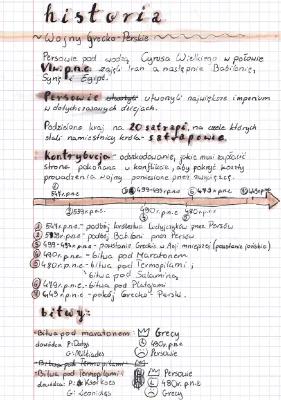 historia
Wojny Grecko-Perskie
Persowie pod wodzą Cyrusa Wielkiego w połowie
VI w. p.n.e. zajęli Iran a następnie Babilonię,
Syrię i Egipt.
Persowie utworzyli największe imperium
w dotychczasowych dziejach.
Podzielono kraj na 20 satrapi, na czele których
stali namiestnicy króla - satrapowie.
Kontrybucja - odszkodowanie, jakie musi zapłacić
strona pokonana w konflikcie, aby pokryć koszty
prowadzenia wojny poniesione przez zwycięzcę.
547r.p.n.e. 499-494r.p.n.e. 479r.p.n.e. 449r.p.n.e.
539r.p.n.e. 490r.p.n.e. 480r.p.n.e.
① 547r.p.n.e - podbój królestwa Lidyjczyków przez Persów
② 539r.p.n.e - podbój Babilonii przez Persów
③ 499-494r.p.n.e - powstanie Greków w Azji mniejszej (powstanie jońskie)
④ 490r.p.n.e - bitwa pod Maratonem
⑤ 480r.p.n.e - bitwa pod Termopilami i
bitwa pod Salaminą
⑥ 479r.p.n.e - bitwa pod Platejami
⑦ 449r.p.n.e - pokój Grecko-Perski.
bitwy:
Bitwa pod maratonem: Grecy
dowódca: P: Datys 490r.p.n.e
G: Miltiades Persowie
Bitwa pod Termopilami
Bitwa pod Termopilami: Persowie
dowódca: P: Kserkses 480r.p.n.e
G: Leonidas Grecy